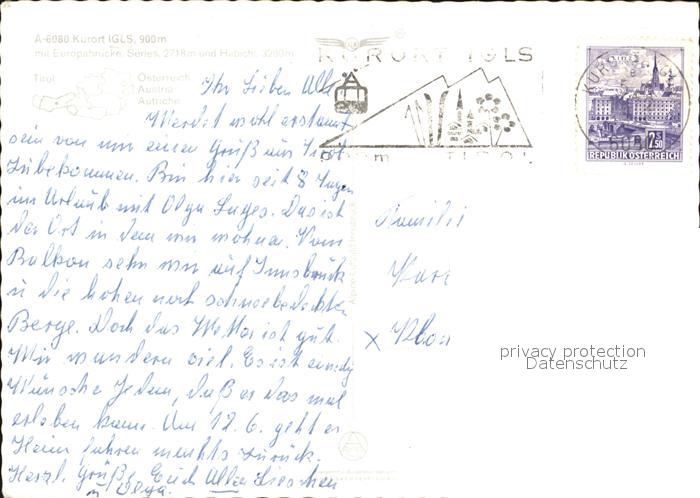 A-6080 Kurort IGLS, 900m
mit Europabrücke, Serles, 2718m und Habicht, 3280m
Tirol
Österreich
Austria
Autriche
KURORT IGLS
TIROL
2.50
REPUBLIK ÖSTERREICH
Ihr Lieben All
Werdet wohl erstaunt
sein von mir einen Gruß aus Tirol
zubekommen. Bin hier seit 8 Tagen
im Urlaub mit Olga. Das ist
der Ort in dem wir wohnen. Vom
Balkon sehn wir auf Innsbruck
u die hohen noch schneebedeckten
Berge. Doch das Wetter ist gut.
Wir wandern viel. Es ist
Wünsche Jedem, daß er das mal
erleben kann. Am 12.6. geht es
Heim zurück.
Herzl. Grüße Euch Allen Lieschen
u Olga.
Familie
Karl
x
privacy protection
Datenschutz